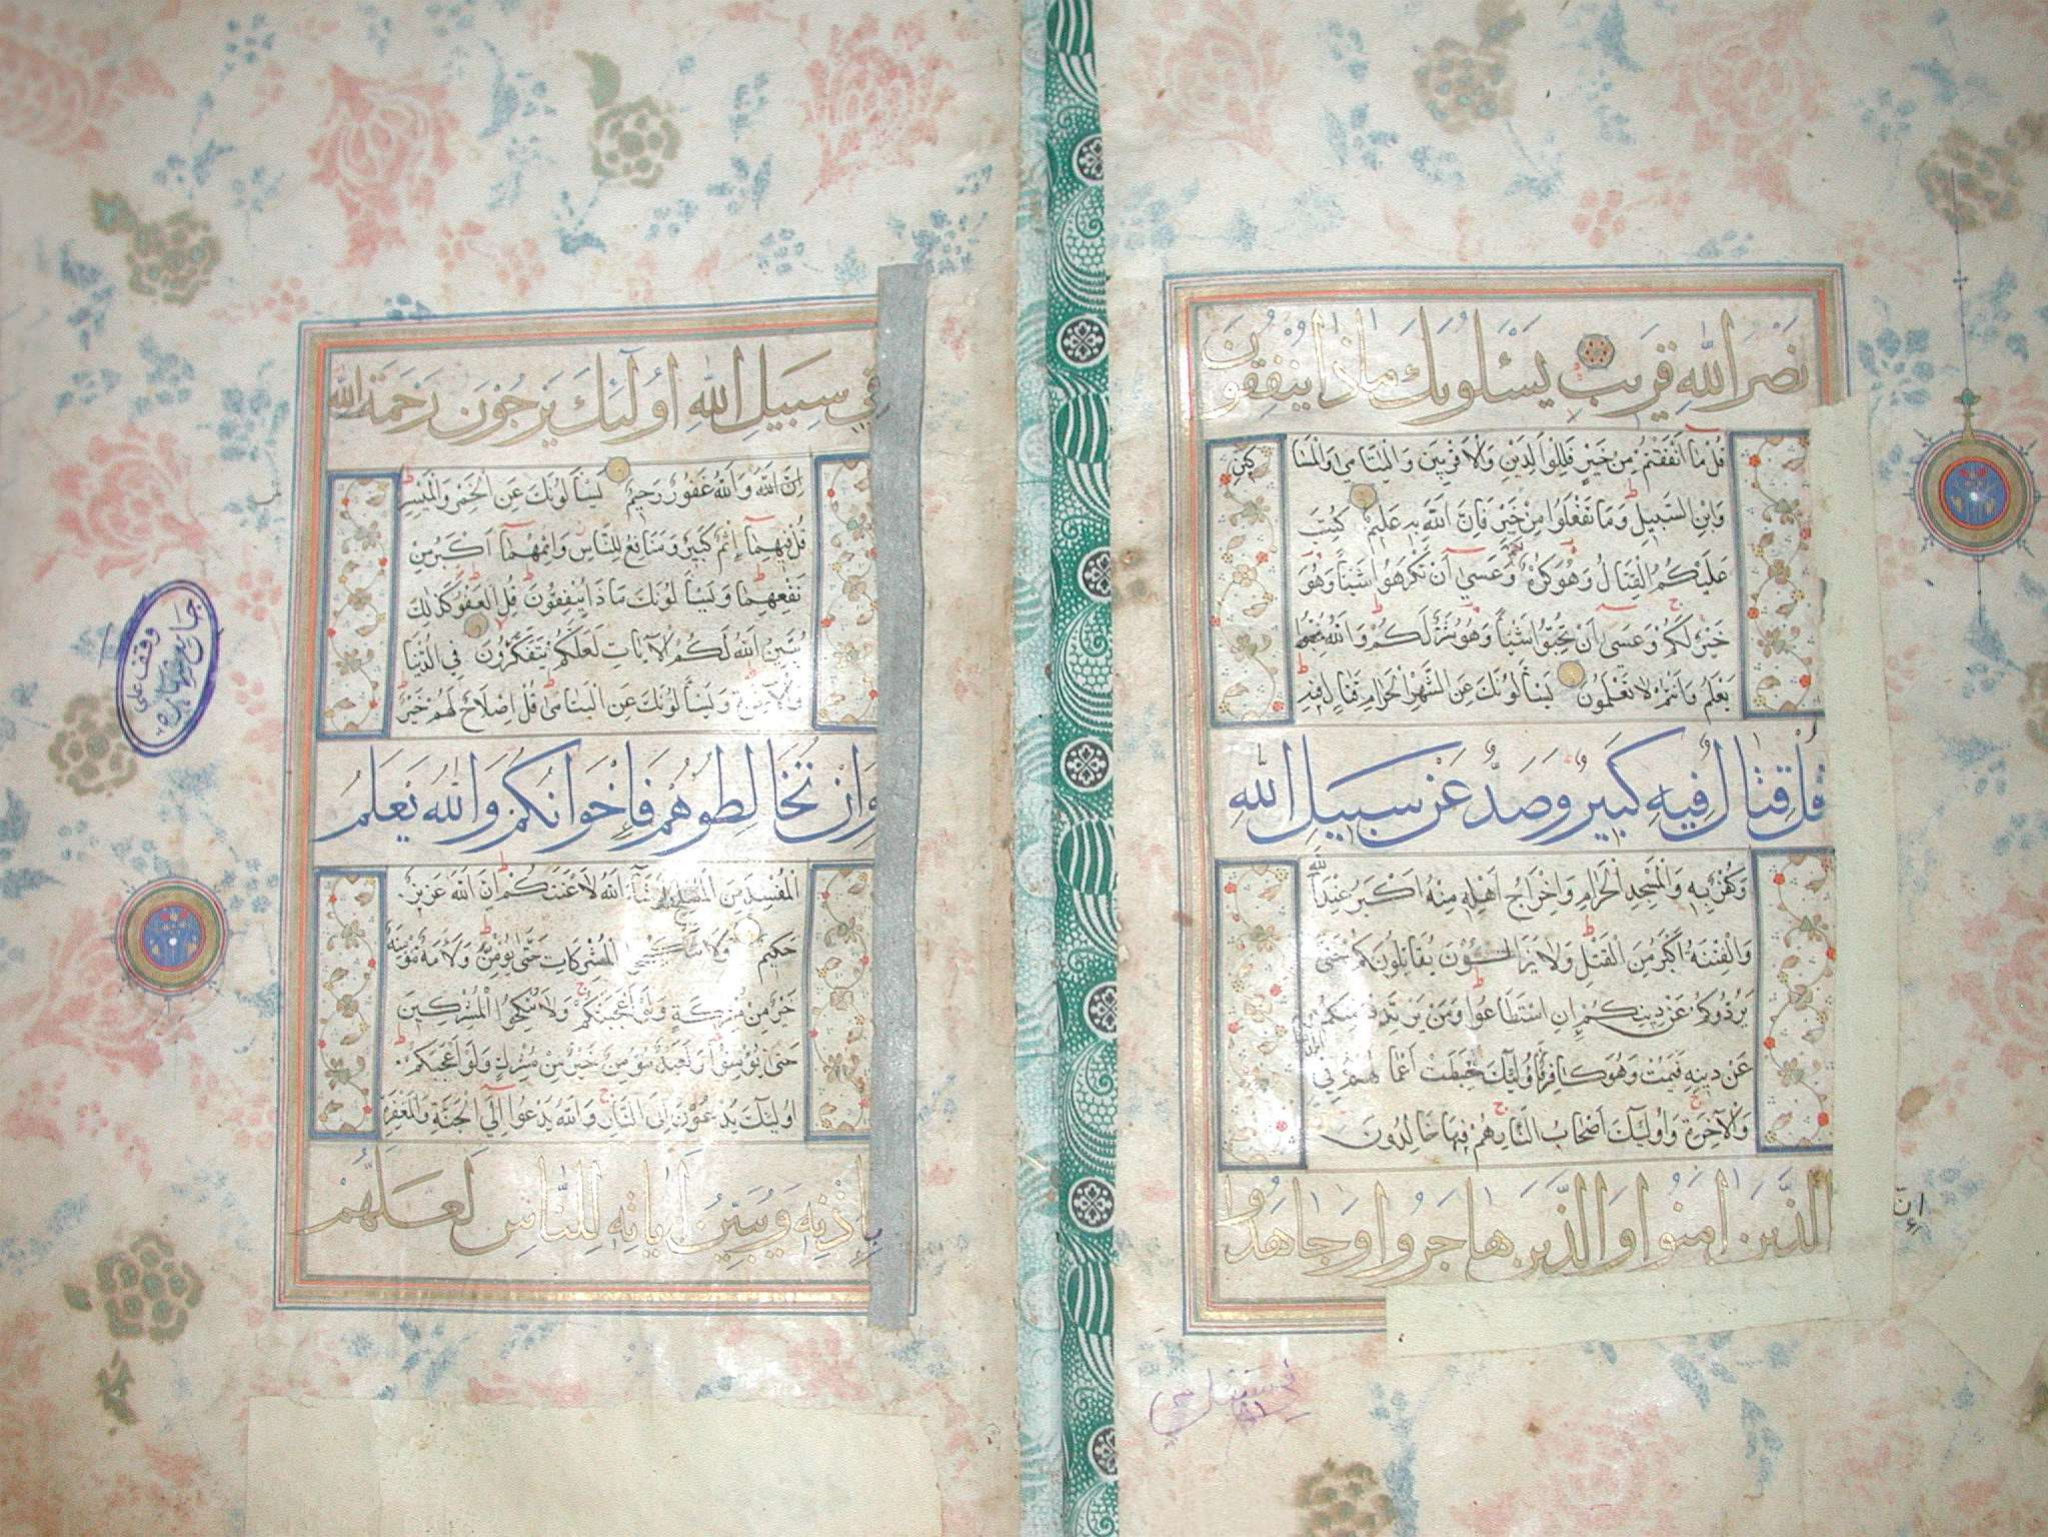 نَصْرَ اللَّهِ قَرِيبٌ يَسْئَلُونَكَ مَاذَا يُنْفِقُونَ
قُلْ مَا أَنْفَقْتُمْ مِنْ خَيْرٍ فَلِلْوَالِدَيْنِ وَالْأَقْرَبِينَ وَالْيَتَامَىٰ وَالْمَسَاكِينِ
وَابْنِ السَّبِيلِ وَمَا تَفْعَلُوا مِنْ خَيْرٍ فَإِنَّ اللَّهَ بِهِ عَلِيمٌ كُتِبَ
عَلَيْكُمُ الْقِتَالُ وَهُوَ كُرْهٌ لَكُمْ وَعَسَىٰ أَنْ تَكْرَهُوا شَيْئًا وَهُوَ
خَيْرٌ لَكُمْ وَعَسَىٰ أَنْ تُحِبُّوا شَيْئًا وَهُوَ شَرٌّ لَكُمْ وَاللَّهُ
يَعْلَمُ وَأَنْتُمْ لَا تَعْلَمُونَ يَسْأَلُونَكَ عَنِ الشَّهْرِ الْحَرَامِ قِتَالٍ فِيهِ
قُلْ قِتَالٌ فِيهِ كَبِيرٌ وَصَدٌّ عَنْ سَبِيلِ اللَّهِ
وَكُفْرٌ بِهِ وَالْمَسْجِدِ الْحَرَامِ وَإِخْرَاجُ أَهْلِهِ مِنْهُ أَكْبَرُ عِنْدَ اللَّهِ
وَالْفِتْنَةُ أَكْبَرُ مِنَ الْقَتْلِ وَلَا يَزَالُونَ يُقَاتِلُونَكُمْ حَتَّىٰ
يَرُدُّوكُمْ عَنْ دِينِكُمْ إِنِ اسْتَطَاعُوا وَمَنْ يَرْتَدِدْ مِنْكُمْ
عَنْ دِينِهِ فَيَمُتْ وَهُوَ كَافِرٌ فَأُولَٰئِكَ حَبِطَتْ أَعْمَالُهُمْ فِي
وَالْآخِرَةِ وَأُولَٰئِكَ أَصْحَابُ النَّارِ هُمْ فِيهَا خَالِدُونَ
إِنَّ
الَّذِينَ آمَنُوا وَالَّذِينَ هَاجَرُوا وَجَاهَدُوا
فِي سَبِيلِ اللَّهِ أُولَٰئِكَ يَرْجُونَ رَحْمَةَ اللَّهِ
إِنَّ اللَّهَ وَاللَّهُ غَفُورٌ رَحِيمٌ يَسْأَلُونَكَ عَنِ الْخَمْرِ وَالْمَيْسِرِ
قُلْ فِيهِمَا إِثْمٌ كَبِيرٌ وَمَنَافِعُ لِلنَّاسِ وَإِثْمُهُمَا أَكْبَرُ مِنْ
نَفْعِهِمَا وَيَسْأَلُونَكَ مَاذَا يُنْفِقُونَ قُلِ الْعَفْوَ كَذَٰلِكَ
يُبَيِّنُ اللَّهُ لَكُمُ الْآيَاتِ لَعَلَّكُمْ تَتَفَكَّرُونَ فِي الدُّنْيَا
وَالْآخِرَةِ وَيَسْأَلُونَكَ عَنِ الْيَتَامَىٰ قُلْ إِصْلَاحٌ لَهُمْ خَيْرٌ
وَإِنْ تُخَالِطُوهُمْ فَإِخْوَانُكُمْ وَاللَّهُ يَعْلَمُ
الْمُفْسِدَ مِنَ الْمُصْلِحِ وَلَوْ شَاءَ اللَّهُ لَأَعْنَتَكُمْ إِنَّ اللَّهَ عَزِيزٌ
حَكِيمٌ وَلَا تَنْكِحُوا الْمُشْرِكَاتِ حَتَّىٰ يُؤْمِنَّ وَلَأَمَةٌ مُؤْمِنَةٌ
خَيْرٌ مِنْ مُشْرِكَةٍ وَلَوْ أَعْجَبَتْكُمْ وَلَا تُنْكِحُوا الْمُشْرِكِينَ
حَتَّىٰ يُؤْمِنُوا وَلَعَبْدٌ مُؤْمِنٌ خَيْرٌ مِنْ مُشْرِكٍ وَلَوْ أَعْجَبَكُمْ
أُولَٰئِكَ يَدْعُونَ إِلَى النَّارِ وَاللَّهُ يَدْعُو إِلَى الْجَنَّةِ وَالْمَغْفِرَةِ
بِإِذْنِهِ وَيُبَيِّنُ آيَاتِهِ لِلنَّاسِ لَعَلَّهُمْ
وقف على